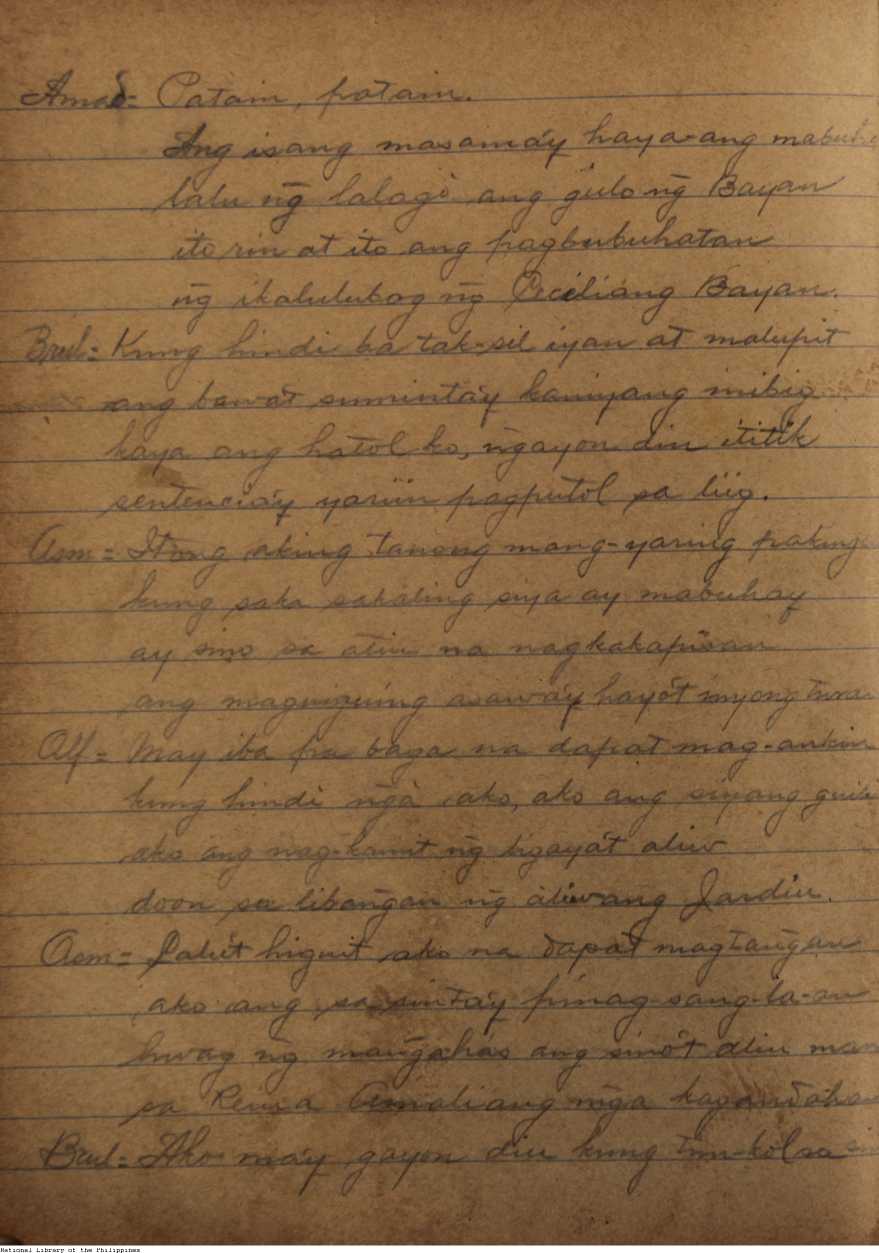 Amad= Patain, patain.
Ang isang masama'y haya-ang mabuha
lalu ng lalago ang gulo ng Bayan
ito rin at ito ang pagbubuhatan
ng ikalulubog ng Peciliang Bayan.
Brul= Kung hindi ba tak-sil iyan at malupit
ang bawa't suminta'y kaniyang inibig
kaya ang hatol ko, ngayon din ititik
sentencia'y yariin pagputol sa liig.
Asm= Itong aking tanong mang-yaring paking
kung saka sakaling siya ay mabuhay
ay sino sa atin na nagkakapisan
ang maguiguing asawa'y hayo't inyong turan
Alf= May iba pa baga na dapat mag-ankin
kung hindi nga ako, ako ang siyang
ako ang nag-kamit ng ligaya't aliw
doon sa libangan ng aliwang Jardin.
Asm= Lalu't higuit ako na dapat magtangan
ako ang sa sinta'y pinag-sang-la-an
hwag ng mangahas ang sino't alin man
sa Reina Asmaliang mga kagandahan
Brul= Ako ma'y gayon din kung tun-kol sa
National Library of the Philippines